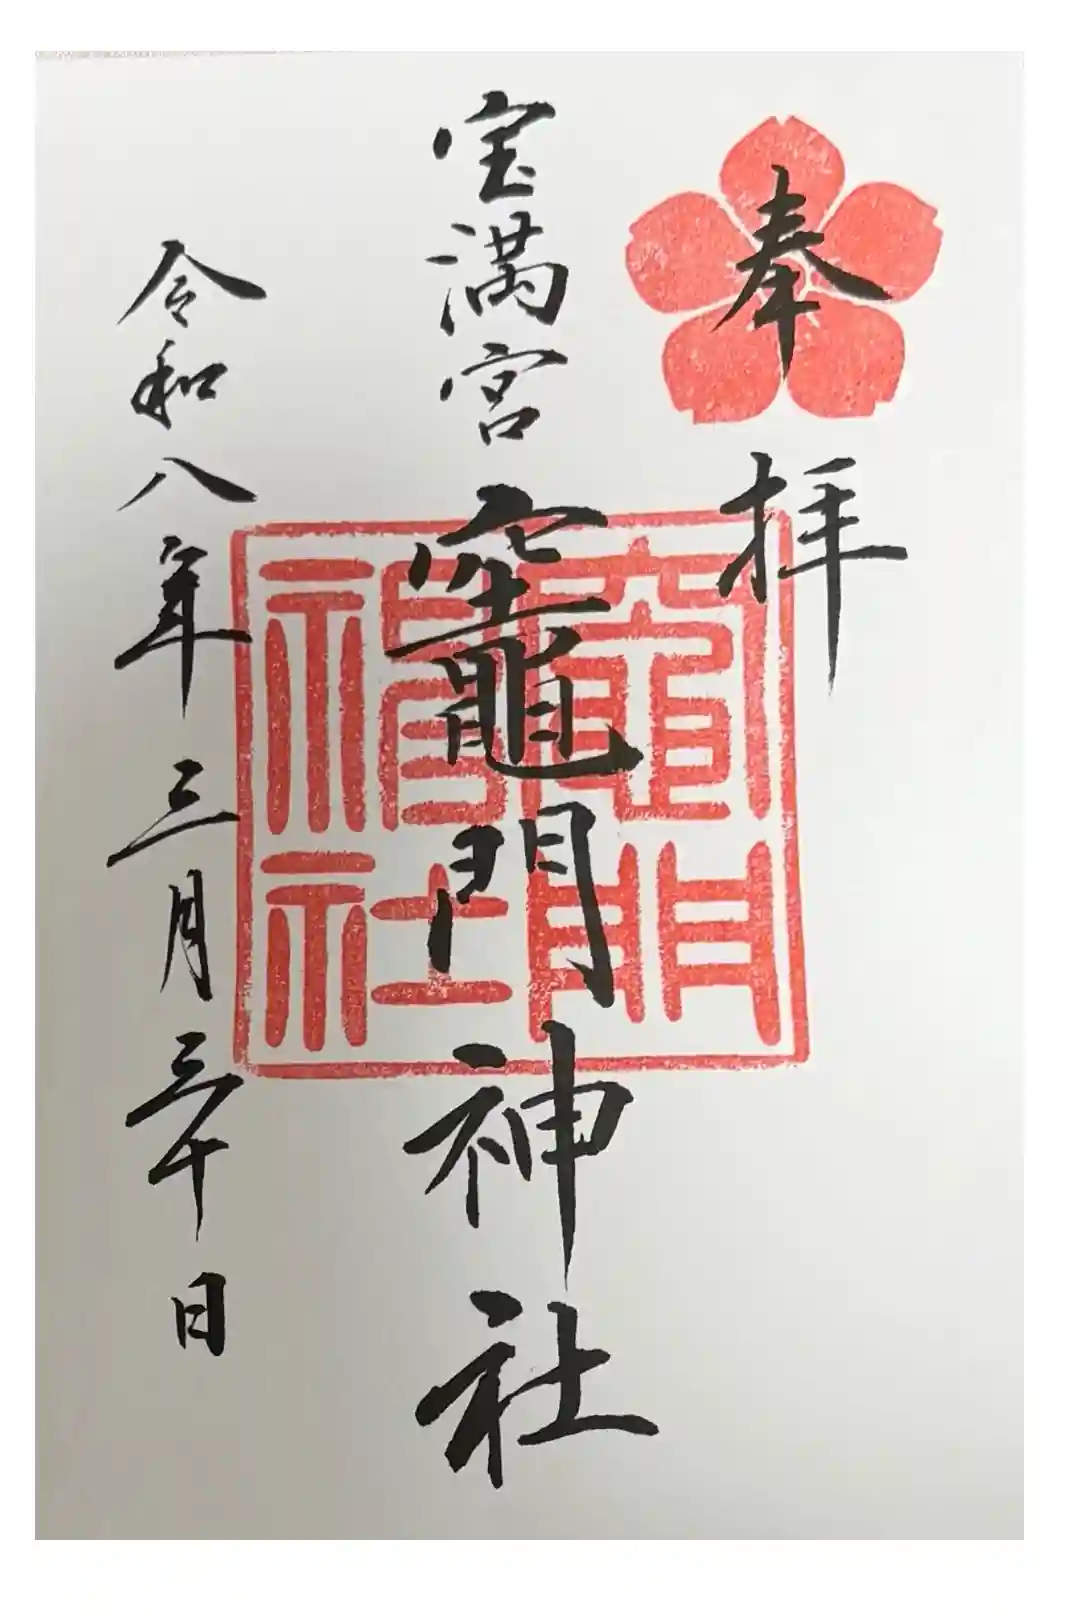 奉拝
宝満宮
竈門神社
竈門神社
令和八年三月三十日